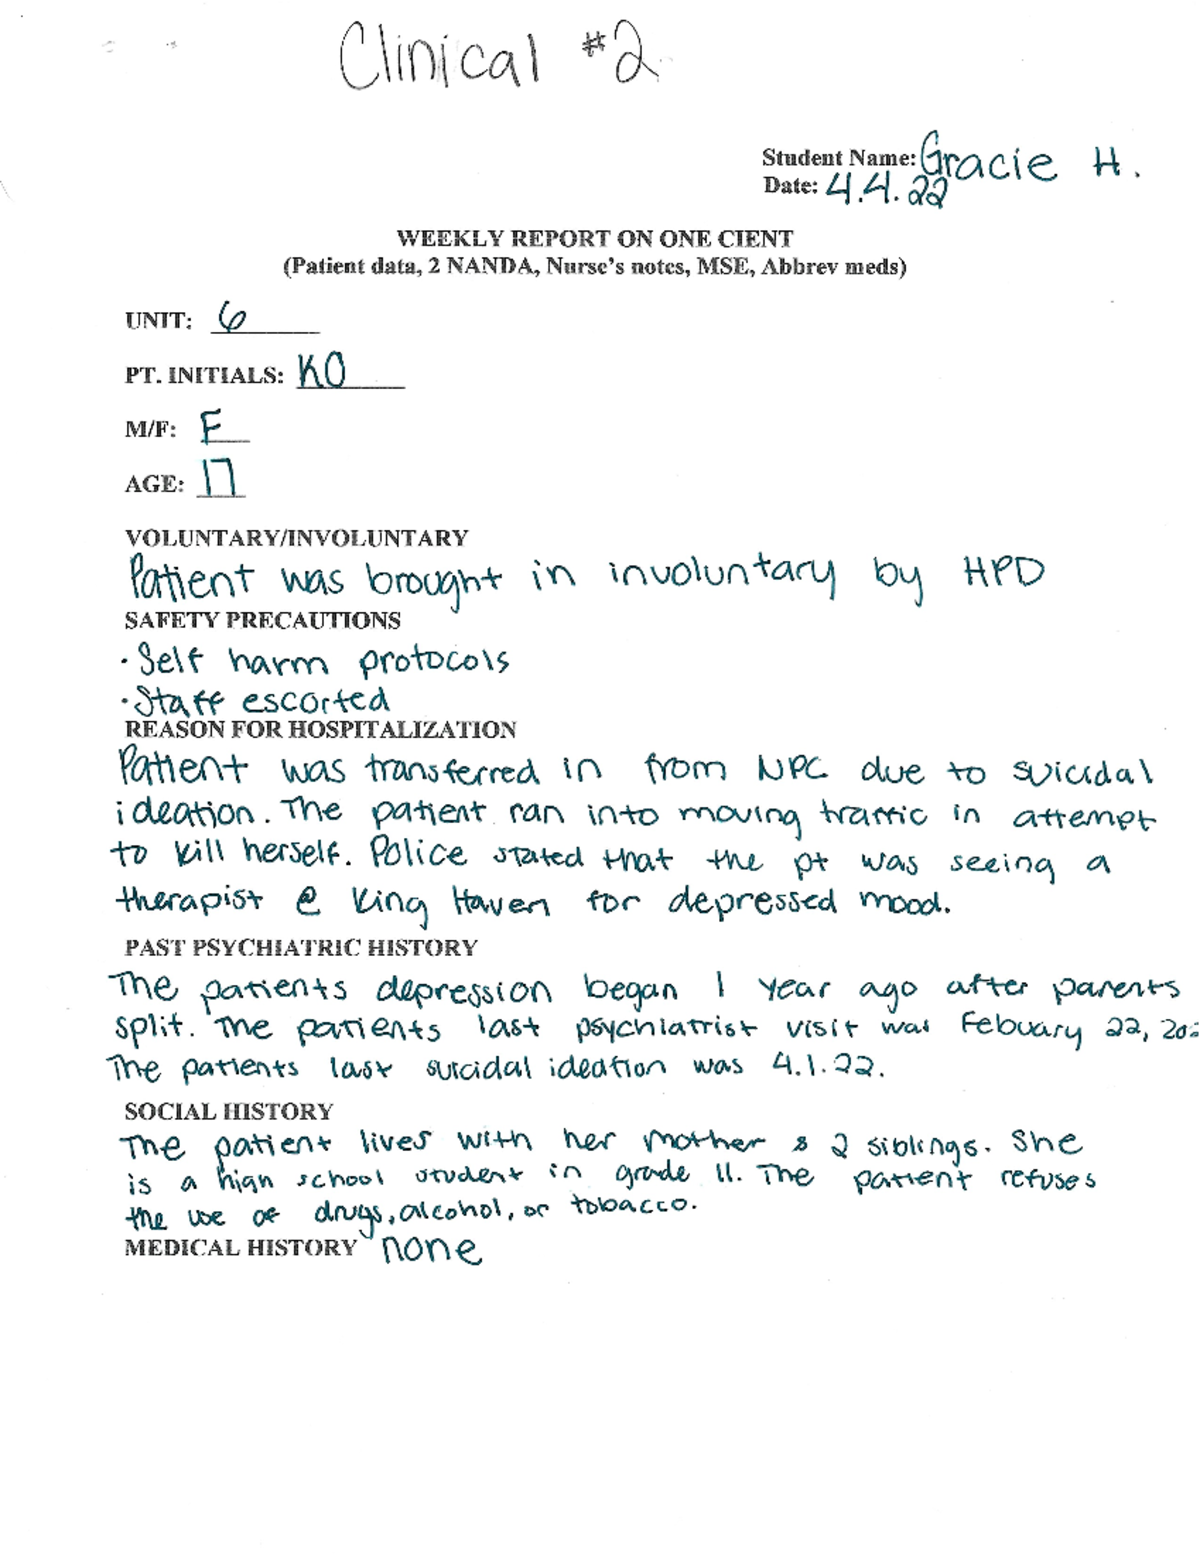 Clinical #2
Student Name: Gracie H.
Date: 4.4.22
WEEKLY REPORT ON ONE CIENT
(Patient data, 2 NANDA, Nurse's notes, MSE, Abbrev meds)
UNIT: 6
PT. INITIALS: KO
M/F: F
AGE: 17
VOLUNTARY/INVOLUNTARY
Patient was brought in involuntary by HPD
SAFETY PRECAUTIONS
• Self harm protocols
• Staff escorted
REASON FOR HOSPITALIZATION
Patient was transferred in from NPC due to suicidal
ideation. The patient ran into moving traffic in attempt
to kill herself. Police stated that the pt was seeing a
therapist @ King Haven for depressed mood.
PAST PSYCHIATRIC HISTORY
The patients depression began 1 year ago after parents
split. The patients last psychiatrist visit was Febuary 22, 202
The patients last suicidal ideation was 4.1.22.
SOCIAL HISTORY
The patient lives with her mother & 2 siblings. She
is a high school student in grade 11. The patient refuses
the use of drugs, alcohol, or tobacco.
MEDICAL HISTORY none